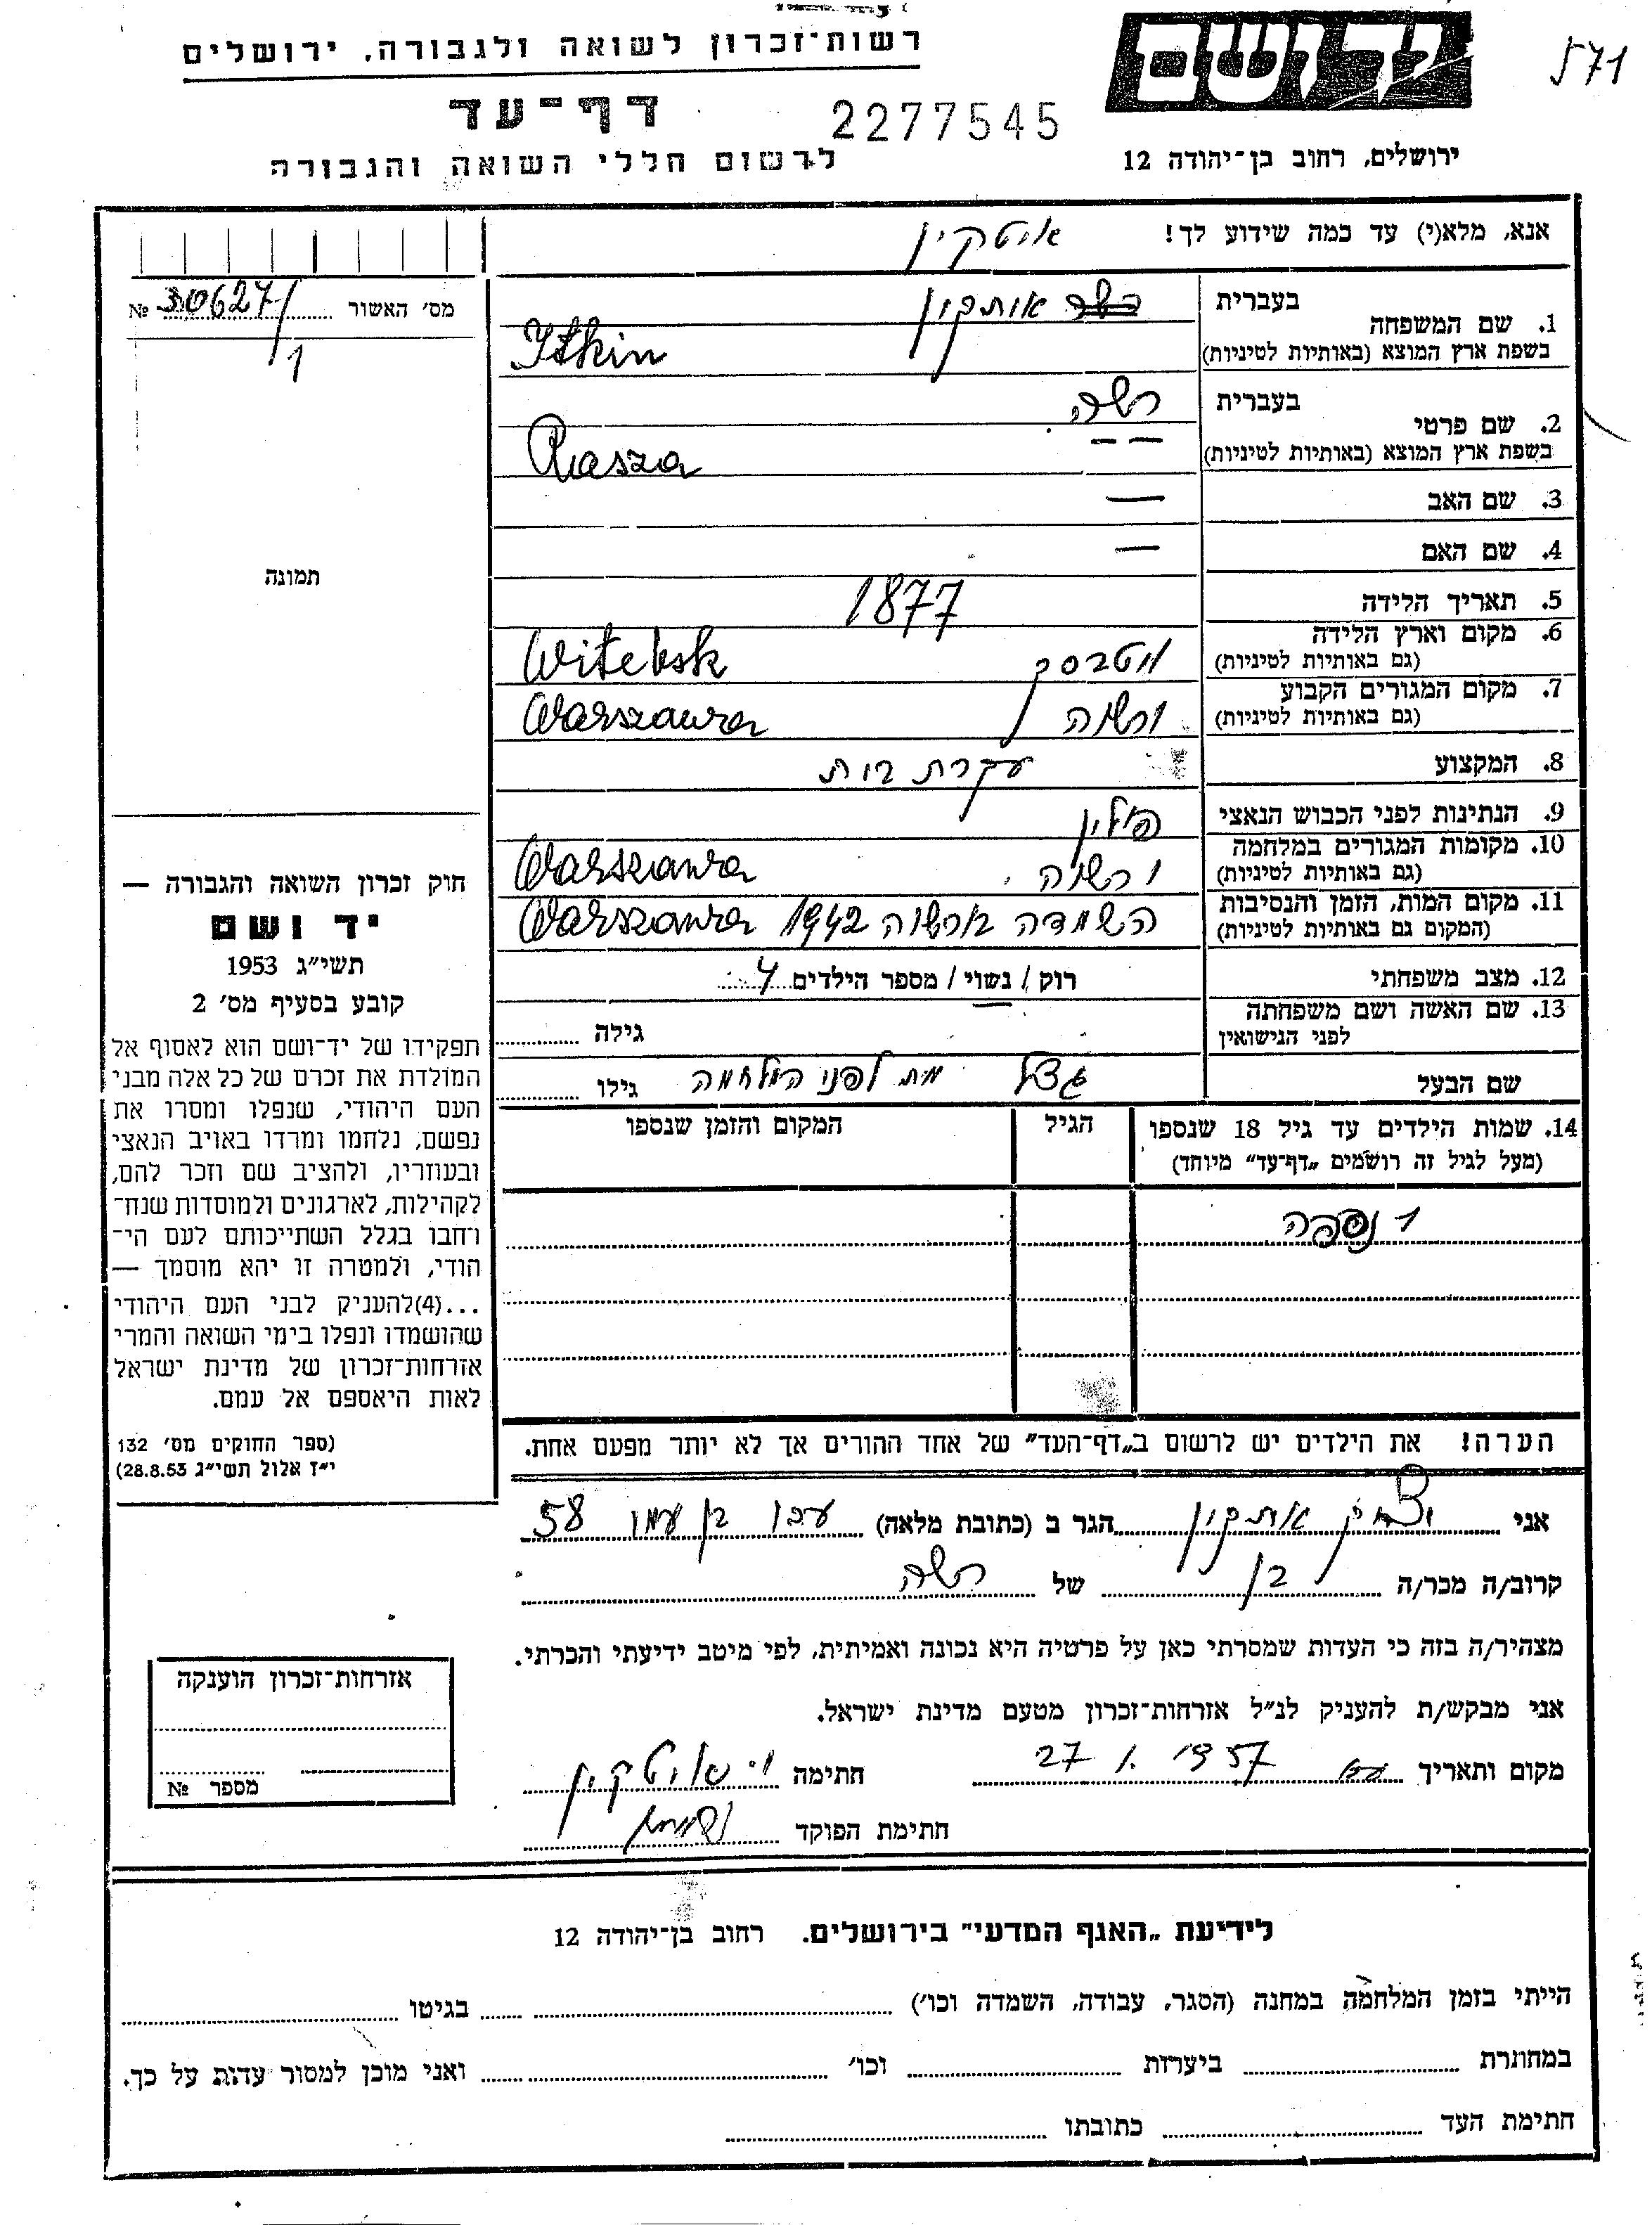 רשות־זכרון לשואה ולגבורה, ירושלים
יד ושם
571
דף־עד
2277545
לרשום חללי השואה והגבורה
ירושלים, רחוב בן־יהודה 12
אנא, מלא(י) עד כמה שידוע לך!
איטקין
מס' האשור № 30627/1
1. שם המשפחה
בעברית
איתקין
בשפת ארץ המוצא (באותיות לטיניות)
Itkin
2. שם פרטי
בעברית
רשה
בשפת ארץ המוצא (באותיות לטיניות)
Rasza
— —
3. שם האב —
4. שם האם —
תמונה
5. תאריך הלידה 1877
6. מקום וארץ הלידה
(גם באותיות לטיניות)
ויטבסק Witebsk
7. מקום המגורים הקבוע
(גם באותיות לטיניות)
ורשה Warszawa
8. המקצוע עקרת בית
9. הנתינות לפני הכבוש הנאצי פולין
10. מקומות המגורים במלחמה
(גם באותיות לטיניות)
ורשה Warszawa
11. מקום המות, הזמן והנסיבות
(המקום גם באותיות לטיניות)
השמדה בורשה 1942 Warszawa
12. מצב משפחתי רוק / נשוי / מספר הילדים 4
13. שם האשה ושם משפחתה
לפני הנישואין
גילה
שם הבעל
מת לפני המלחמה
גילו
14. שמות הילדים עד גיל 18 שנספו
(מעל לגיל זה רושמים „דף־עד" מיוחד)
הגיל
המקום והזמן שנספו
1 נספה
הערה! את הילדים יש לרשום ב„דף־העד" של אחד ההורים אך לא יותר מפעם אחת.
חוק זכרון השואה והגבורה —
יד ושם
תשי"ג 1953
קובע בסעיף מס' 2
תפקידו של יד־ושם הוא לאסוף אל
המולדת את זכרם של כל אלה מבני
העם היהודי, שנפלו ומסרו את
נפשם, נלחמו ומרדו באויב הנאצי
ובעוזריו, ולהציב שם וזכר להם,
לקהילות, לארגונים ולמוסדות שנח־
רחבו בגלל השתייכותם לעם הי־
הודי, ולמטרה זו יהא מוסמך —
...(4)להעניק לבני העם היהודי
שהושמדו ונפלו בימי השואה והמרי
אזרחות־זכרון של מדינת ישראל
לאות היאספם אל עמם.
(ספר החוקים מס' 132
י"ז אלול תשי"ג 28.8.53)
אני יצחק איתקין הגר ב (כתובת מלאה) עכו בן עמי 58
קרוב/ה מכר/ה בן של רשה
מצהיר/ה בזה כי העדות שמסרתי כאן על פרטיה היא נכונה ואמיתית, לפי מיטב ידיעתי והכרתי.
אני מבקש/ת להעניק לנ"ל אזרחות־זכרון מטעם מדינת ישראל.
מקום ותאריך 27. 1. 1957 חתימה י' איטקין
חתימת הפוקד
אזרחות־זכרון הוענקה
מספר №
לידיעת „האגף המדעי" בירושלים. רחוב בן־יהודה 12
הייתי בזמן המלחמה במחנה (הסגר, עבודה, השמדה וכו') בגיטו
במחתרת ביערות וכו' ואני מוכן למסור עדות על כך.
חתימת העד כתובתו